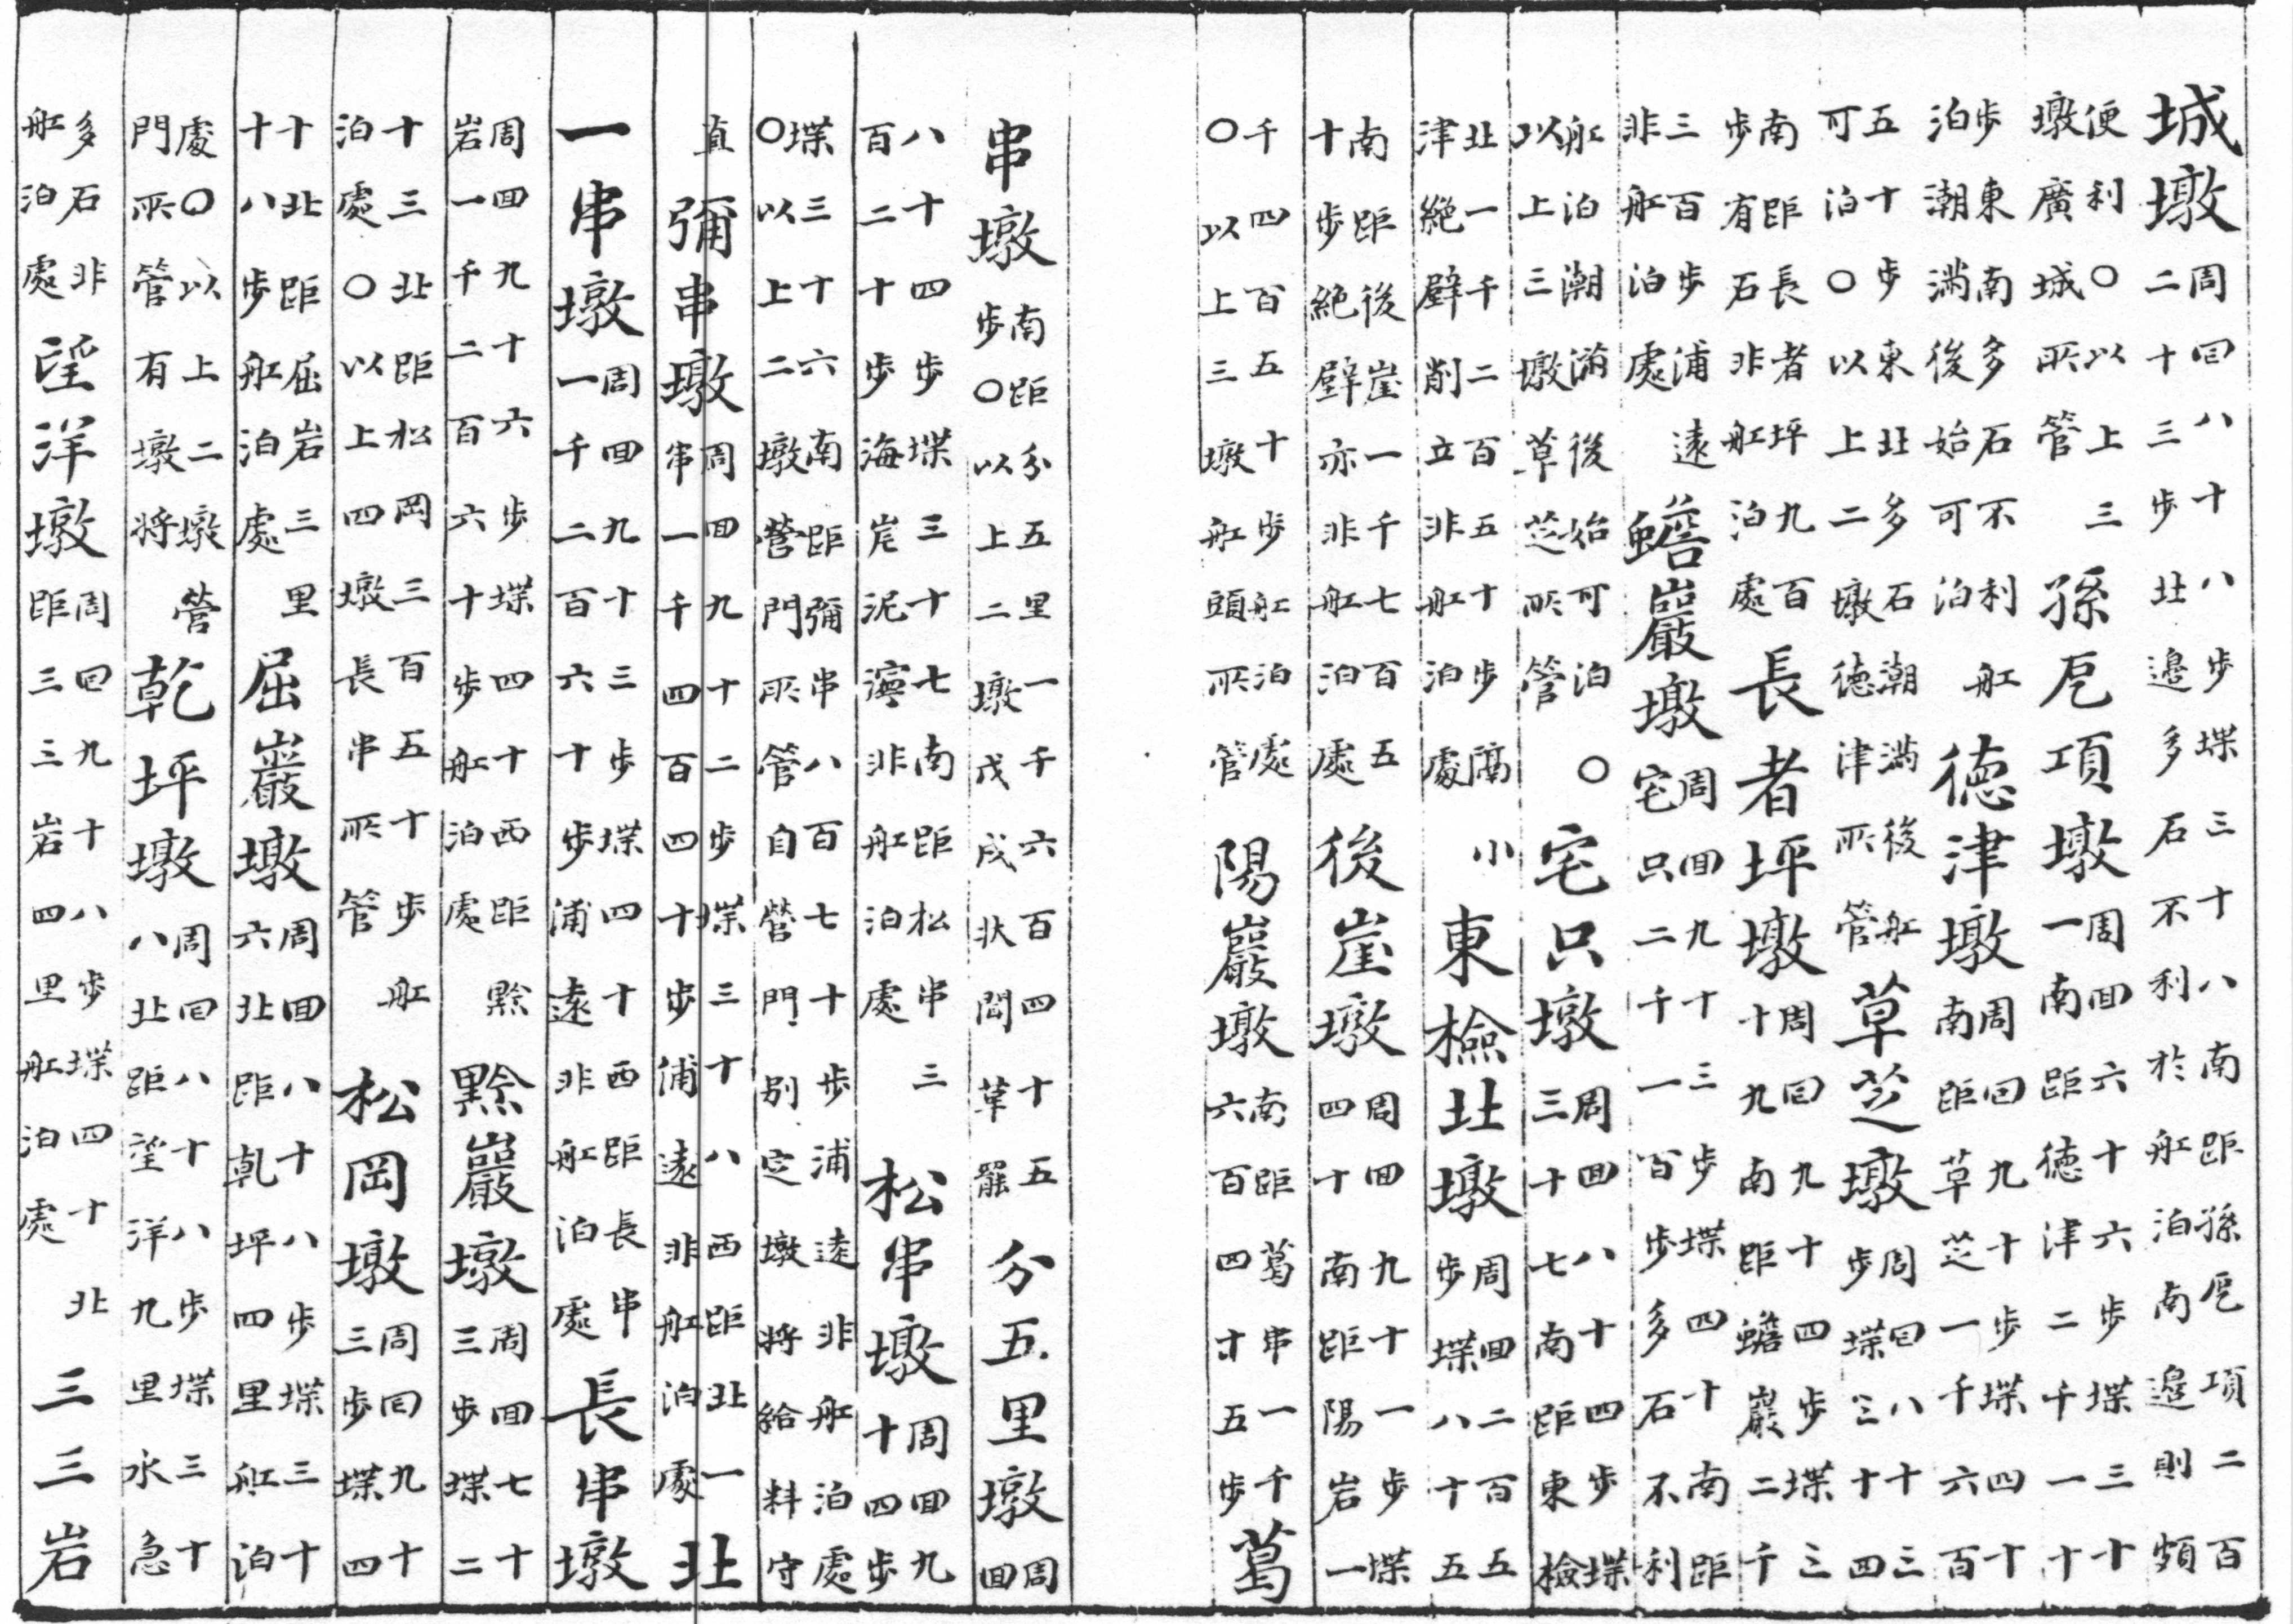 城墩周回八十八步堞三十八南距孫戹項二百二十三步北邊多石不利於舡泊南邊則頗
便利〇以上三墩廣城所管孫戹項墩周回六十六步堞三十一南距德津二千一十
步東南多石不利舡泊潮滿後始可泊德津墩周回九十步堞四十南距草芝一千六百
五十步東北多石潮滿後舡可泊〇以上二墩德津所管草芝墩周回八十三步堞三十四
南距長者坪九百步有石非舡泊處長者坪墩周回九十四步堞三十九南距蟾巖二千
三百步浦遠非舡泊處蟾巖墩周回九十三步堞四十南距宅只二千一百步多石不利
舡泊潮滿後始可泊〇以上三墩草芝所管宅只墩周回八十四步堞三十七南距東檢
北一千二百五十步隔小津絶壁削立非舡泊處東檢北墩周回二百五步堞八十五
南距後崖一千七百五十步絶壁亦非舡泊處後崖墩周回九十一步堞四十南距陽岩一
千四百五十步舡泊處〇以上三墩舡頭所管陽巖墩南距葛串一千六百四十五步葛
串墩南距分五里一千六百四十五步〇以上二墩戊戌狀聞革罷分五里墩周回
八十四步堞三十七南距松串三百二十步海岸泥濘非舡泊處松串墩周回九十四步
堞三十六南距彌串八百七十步浦遠非舡泊處〇以上二墩營門所管自營門別定墩將給料守
直彌串墩周回九十二步堞三十八西距北一串一千四百四十步浦遠非舡泊處北
一串墩周回九十三步堞四十西距長串一千二百六十步浦遠非舡泊處長串墩
周回九十六步堞四十西距黔岩一千二百六十步舡泊處黔巖墩周回七十三步堞二
十三北距松岡三百五十步舡泊處〇以上四墩長串所管松岡墩周回九十三步堞四
十北距屈岩三里十八步舡泊處屈巖墩周回八十八步堞三十六北距乹坪四里舡泊
處〇以上二墩營門所管有墩將乾坪墩周回八十八步堞三十八北距望洋九里水急
多石非舡泊處望洋墩周回九十八步堞四十北距三三岩四里舡泊處三三岩